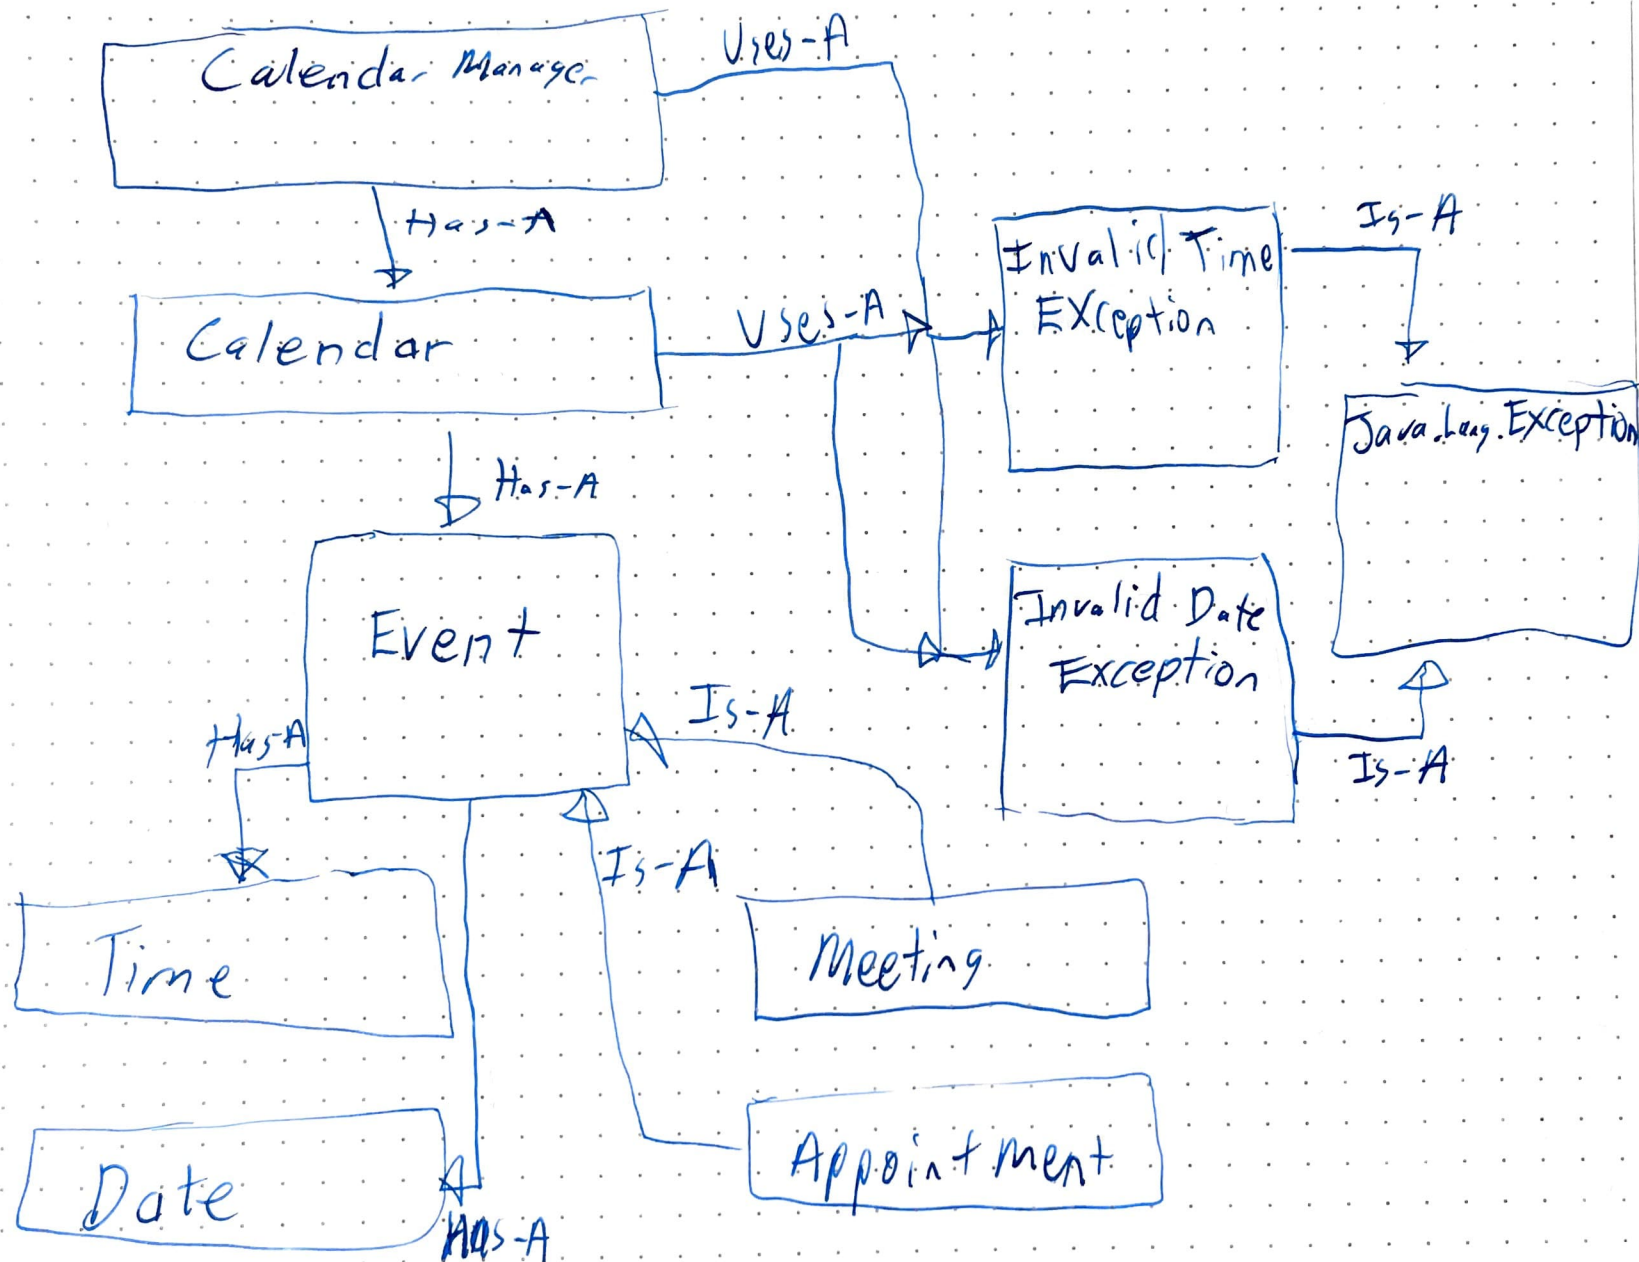 Calendar Manager
Uses-A
Has-A
Is-A
Invalid Time
EXCeption
Calendar
Uses-A
Java.Lang.Exception
Has-A
Event
Invalid Date
Exception
Is-A
Has-A
Is-A
Is-A
Time
Meeting
Date
Appointment
Has-A